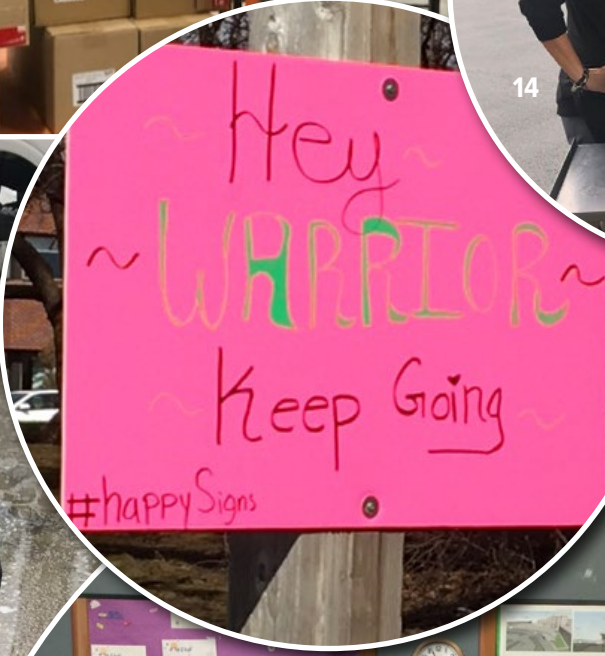 14
Hey
~ WARRIOR ~
Keep Going
#happySigns